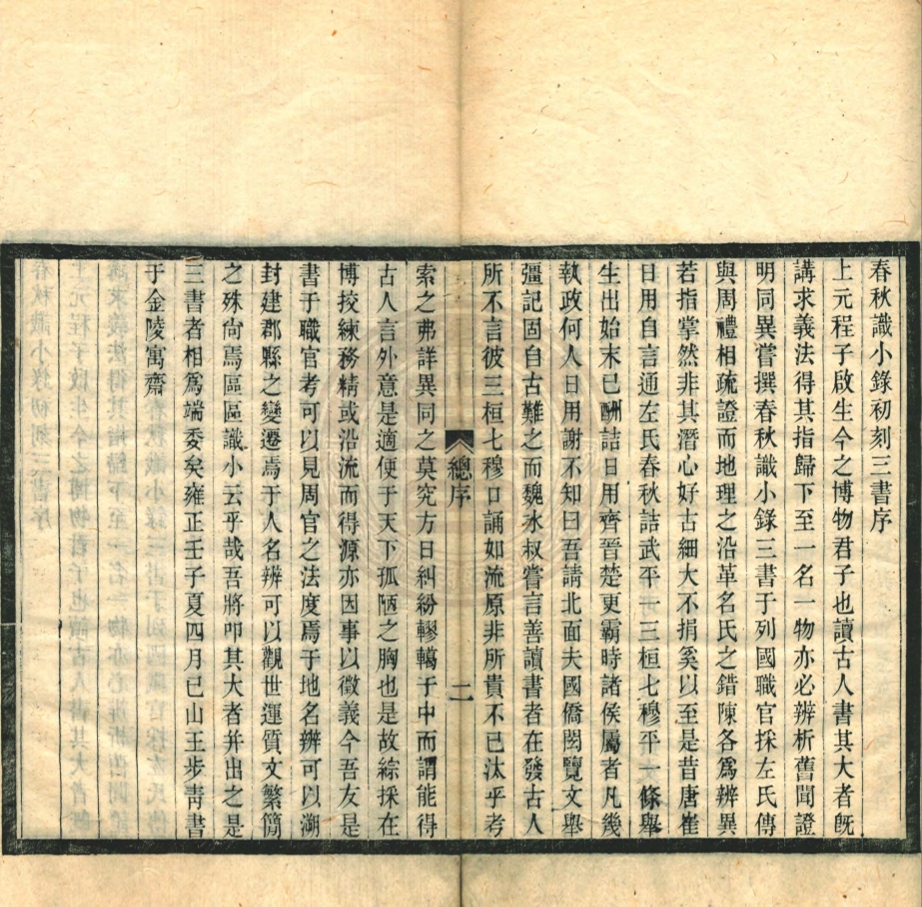 春秋識小錄初刻三書序
上元程子啟生今之博物君子也讀古人書其大者旣
講求義法得其指歸下至一名一物亦必辨析舊聞證
明同異嘗撰春秋識小錄三書于列國職官採左氏傳
與周禮相疏證而地理之沿革名氏之錯陳各爲辨異
若指掌然非其潛心好古細大不捐奚以至是昔唐崔
日用自言通左氏春秋詰武平一三桓七穆平一條舉
生出始末已酬詰日用齊晉楚更霸時諸侯屬者凡幾
執政何人日用謝不知曰吾請北面夫國僑閎覽文舉
彊記固自古難之而魏冰叔嘗言善讀書者在發古人
所不言彼三桓七穆口誦如流原非所貴不已汰乎考
總序
二
索之弗詳異同之莫究方日糾紛轇轕于中而謂能得
古人言外意是適便于天下孤陋之胸也是故綜採在
博挍練務精或沿流而得源亦因事以徵義今吾友是
書于職官考可以見周官之法度焉于地名辨可以溯
封建郡縣之變遷焉于人名辨可以觀世運質文繁簡
之殊尙焉區區識小云乎哉吾將叩其大者并出之是
三書者相爲端委矣雍正壬子夏四月已山王步靑書
于金陵寓齋